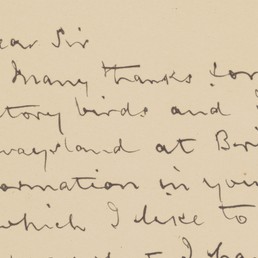 ear Sir
Many thanks for
tory birds and
ways land at Bri
ormation in your
which I like to
I ha